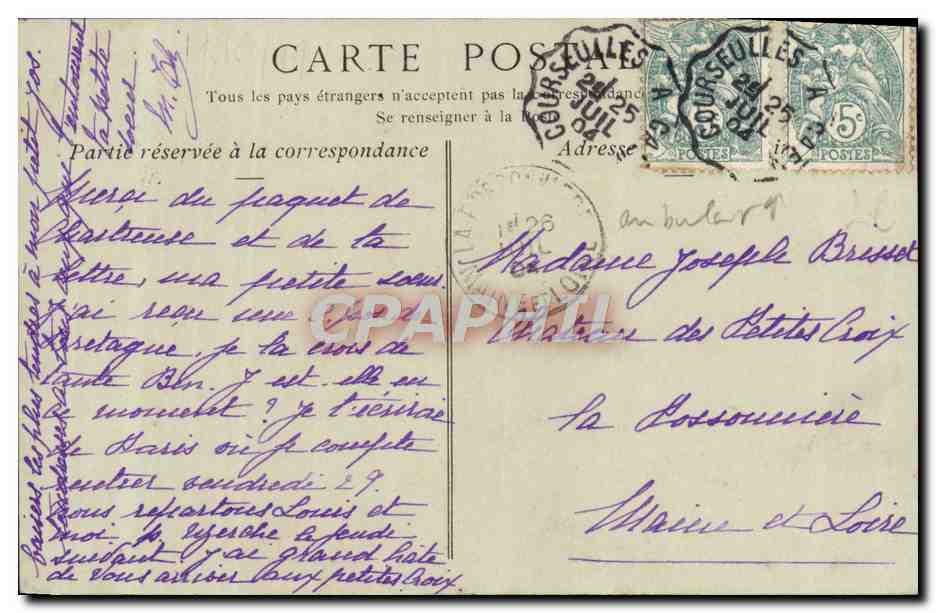 CARTE POSTALE
Tous les pays étrangers n'acceptent pas la correspondance
Se renseigner à la Poste
Partie réservée à la correspondance
Adresse
Merci du paquet de
Chartreuse et de ta
lettre, ma petite soeur
J'ai reçu une vue de
Bretagne. Je la crois de
tante Ben. Y est-elle en
ce moment ? Je t'écrirai
de Paris où je compte
rentrer vendredi 29.
nous repartons Louis et
moi, le jeudi
suivant. J'ai grand hâte
de vous arriver aux petites Croix
baisers les plus tendres à mon petit
ta petite
soeur
COURSEULLES A CA
25 JUIL 04
COURSEULLES A CA
25 JUIL 04
5c
POSTES
POSTES
26
LA POSSONNIERE
MAINE-ET-LOIRE
ambulant
Madame Joseph Brisset
des Petites Croix
la Possonnière
Maine et Loire
CPAPHIL